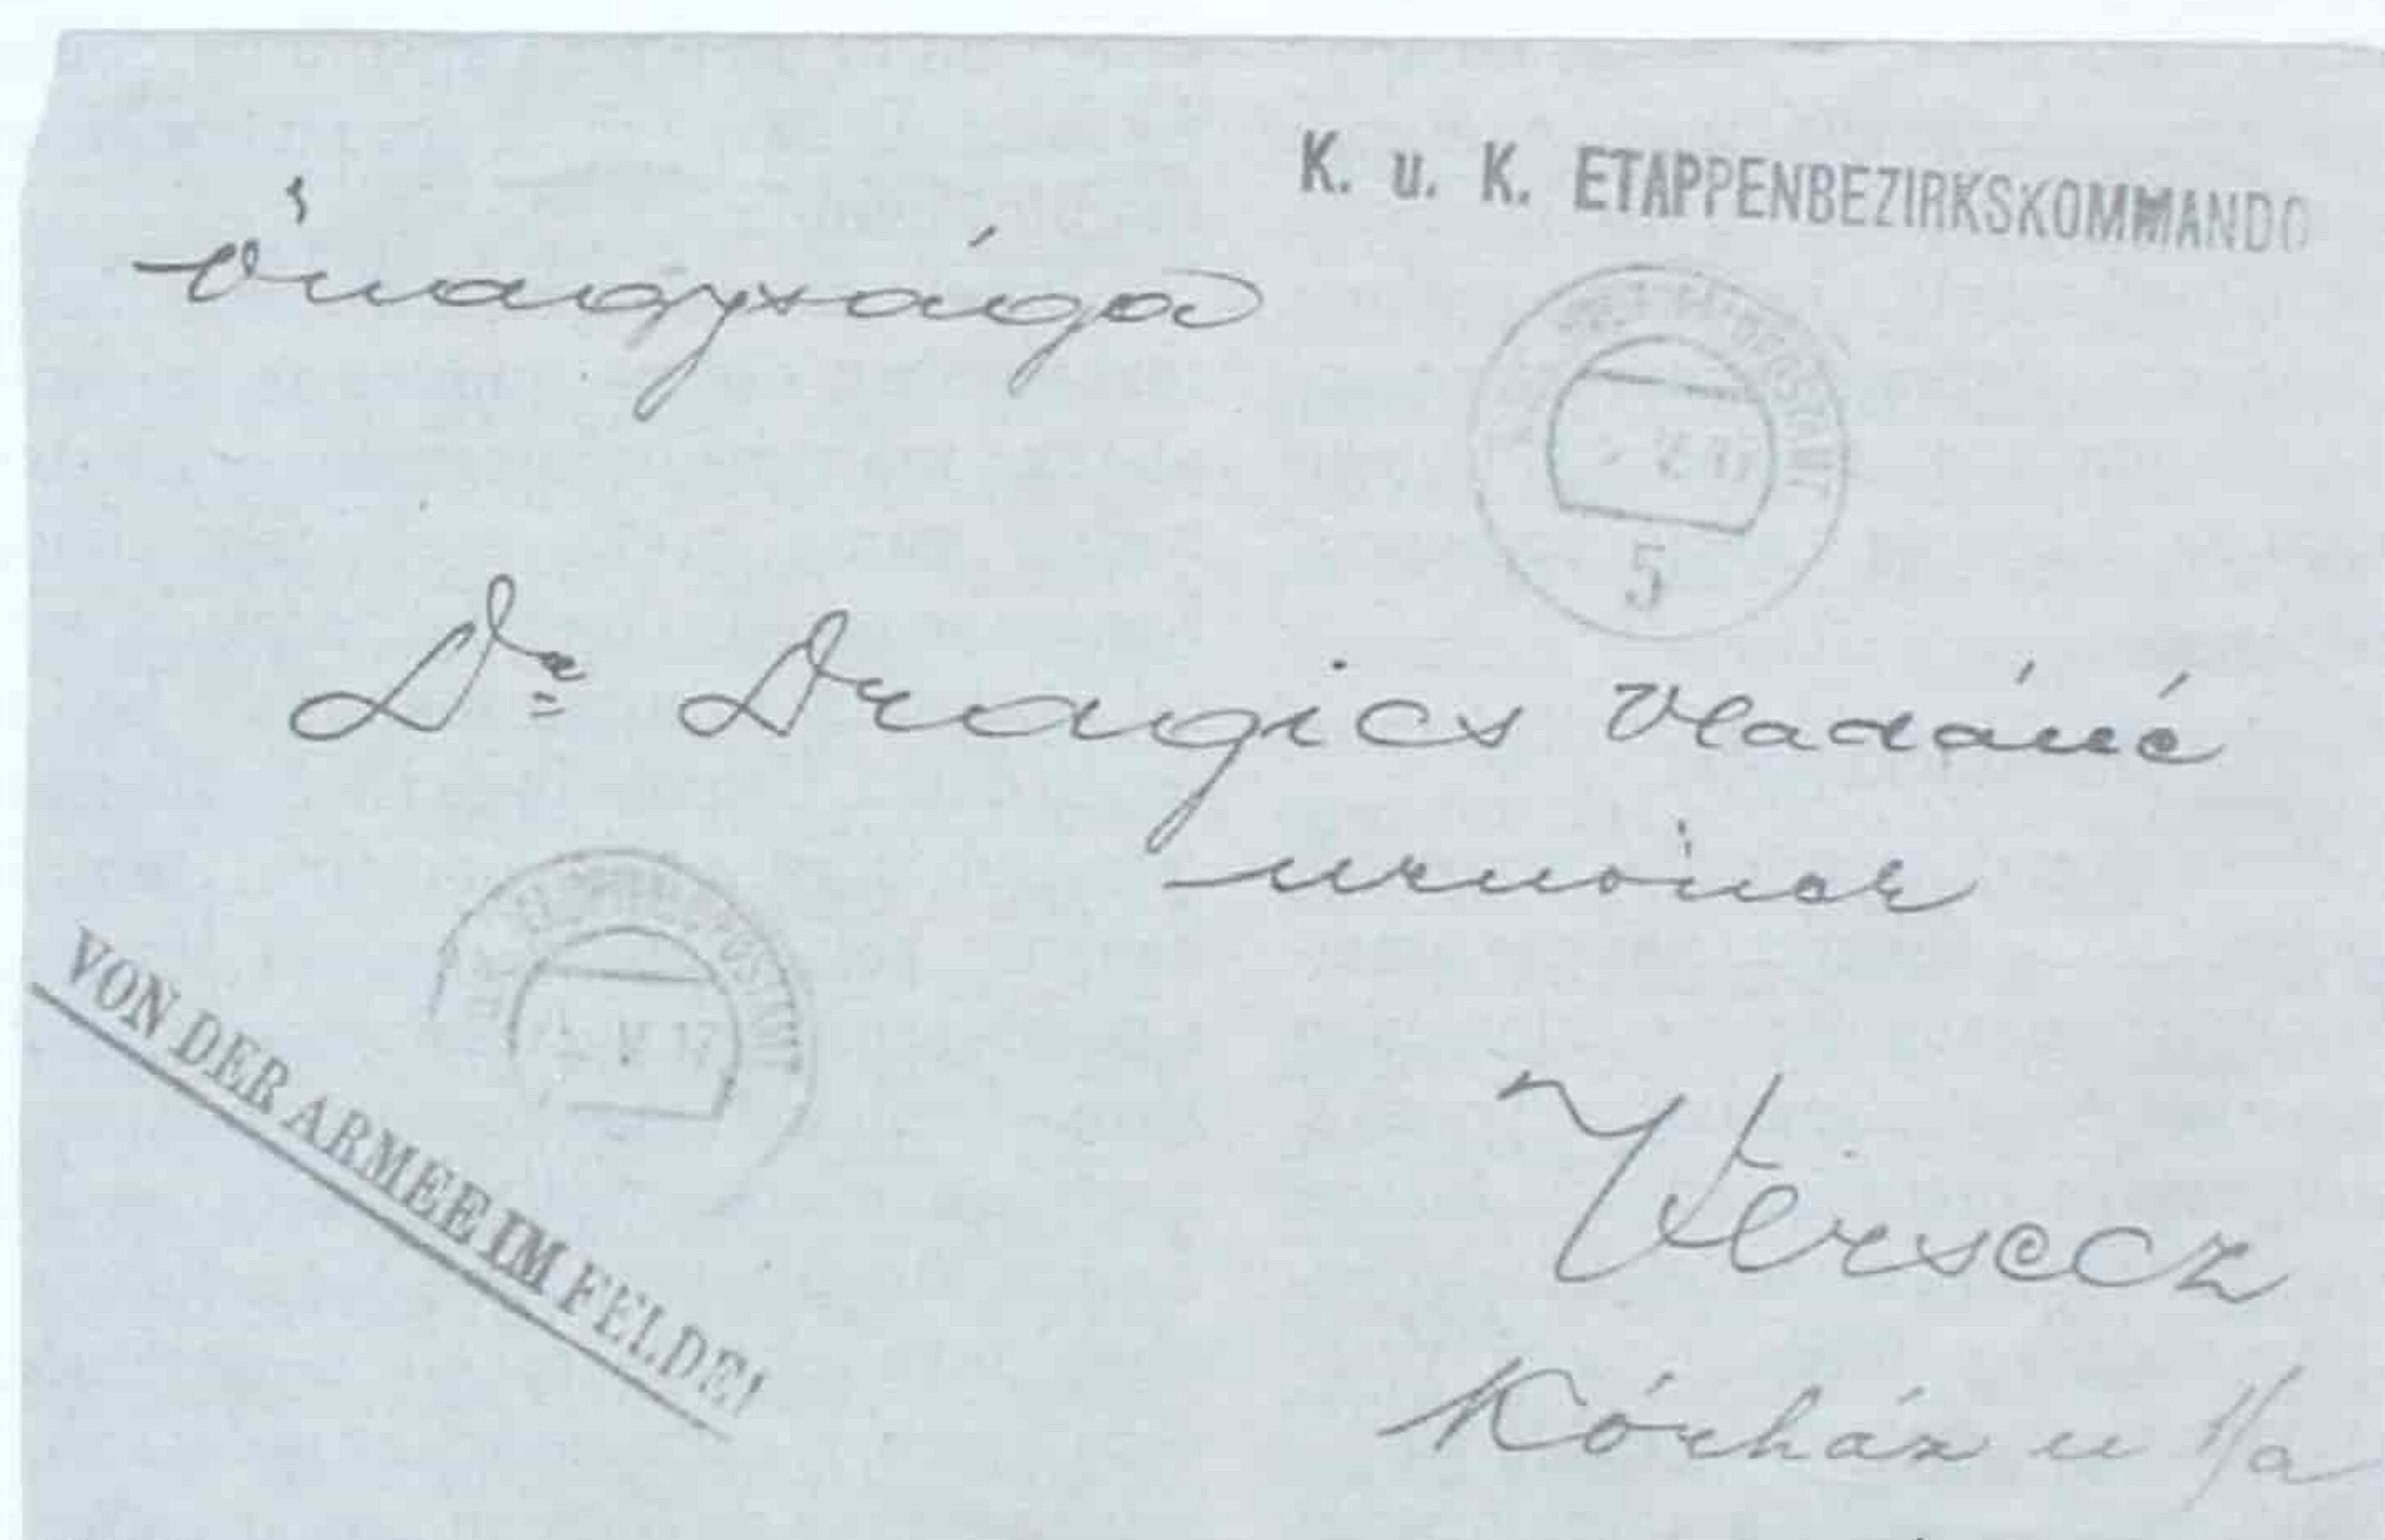 K. u. K. ETAPPENBEZIRKSKOMMANDO
Őnagysága
5
Dr Dragics Vladáné
urnőnek
VON DER ARMEE IM FELDE!
Versecz
Kórház u 1/a